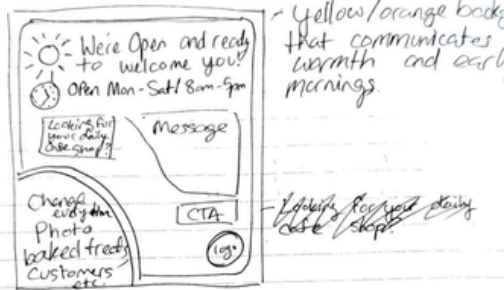 We're Open and ready
to welcome you!
Open Mon-Sat/8am-5pm
Looking for
your daily
shop?
Message
CTA
logo
Change
Photo
baked treats
Customers
etc.
- Yellow/orange backg
that communicates
warmth and earl
mornings.
- Looking for your daily
shop?